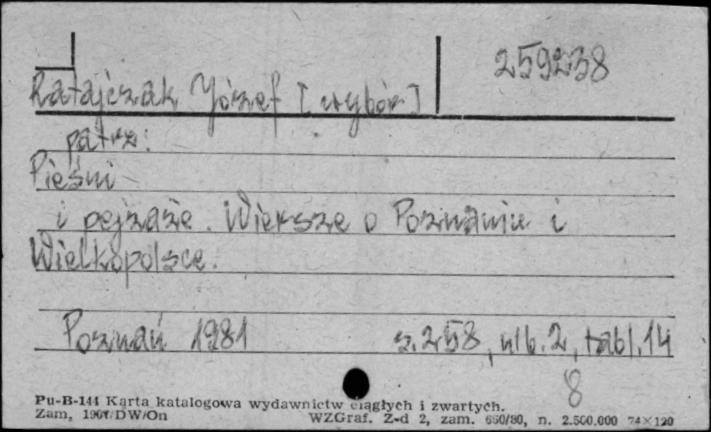 259238
Ratajczak Józef [wybór]
patrz:
Pieśni
i pejzaże. Wiersze o Poznaniu i
Wielkopolsce.
Poznań 1981 s. 258, nlb. 2, tabl. 14
8
Pu-B-144 Karta katalogowa wydawnictw ciągłych i zwartych.
Zam, DW/On WZGraf. Z-d 2, zam. 650/80, n. 2.500.000 74×120